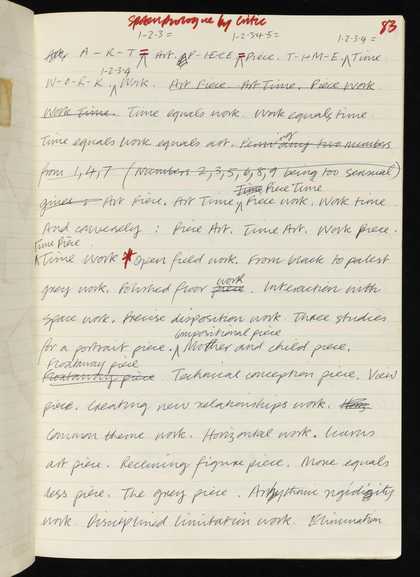 Spoken prologue by Critic
83
1-2-3= 1-2-3-4-5= 1-2-3-4=
A-R-T = Art. P-IE-C-E = Piece. T-I-M-E, Time
1-2-3-4
W-O-R-K, Work. Art Piece. Art Time. Piece Work
Work Time. Time equals work. Work equals time.
or
Time equals work equals art. any two numbers
from 1,4,7 (Numbers 2,3,5,6,8,9 being too sensual)
Time Piece Time
Art Piece. Art Time, Piece work. Work time
And conversely: Piece Art. Time Art. Work Piece.
Time Piece
Time Work * Open field work. From black to palest
work
grey work. Polished floor piece. Interaction with
space work. Precise disposition work. Three studies
impositional piece
for a portrait piece. Mother and child piece.
Floataway piece
Technical conception piece. View
piece. Creating new relationships work.
Common theme work. Horizontal work. Icarus
art piece. Reclining figure piece. More equals
less piece. The grey piece. Arhythmic rigidity
work. Disciplined limitation work. Elimination